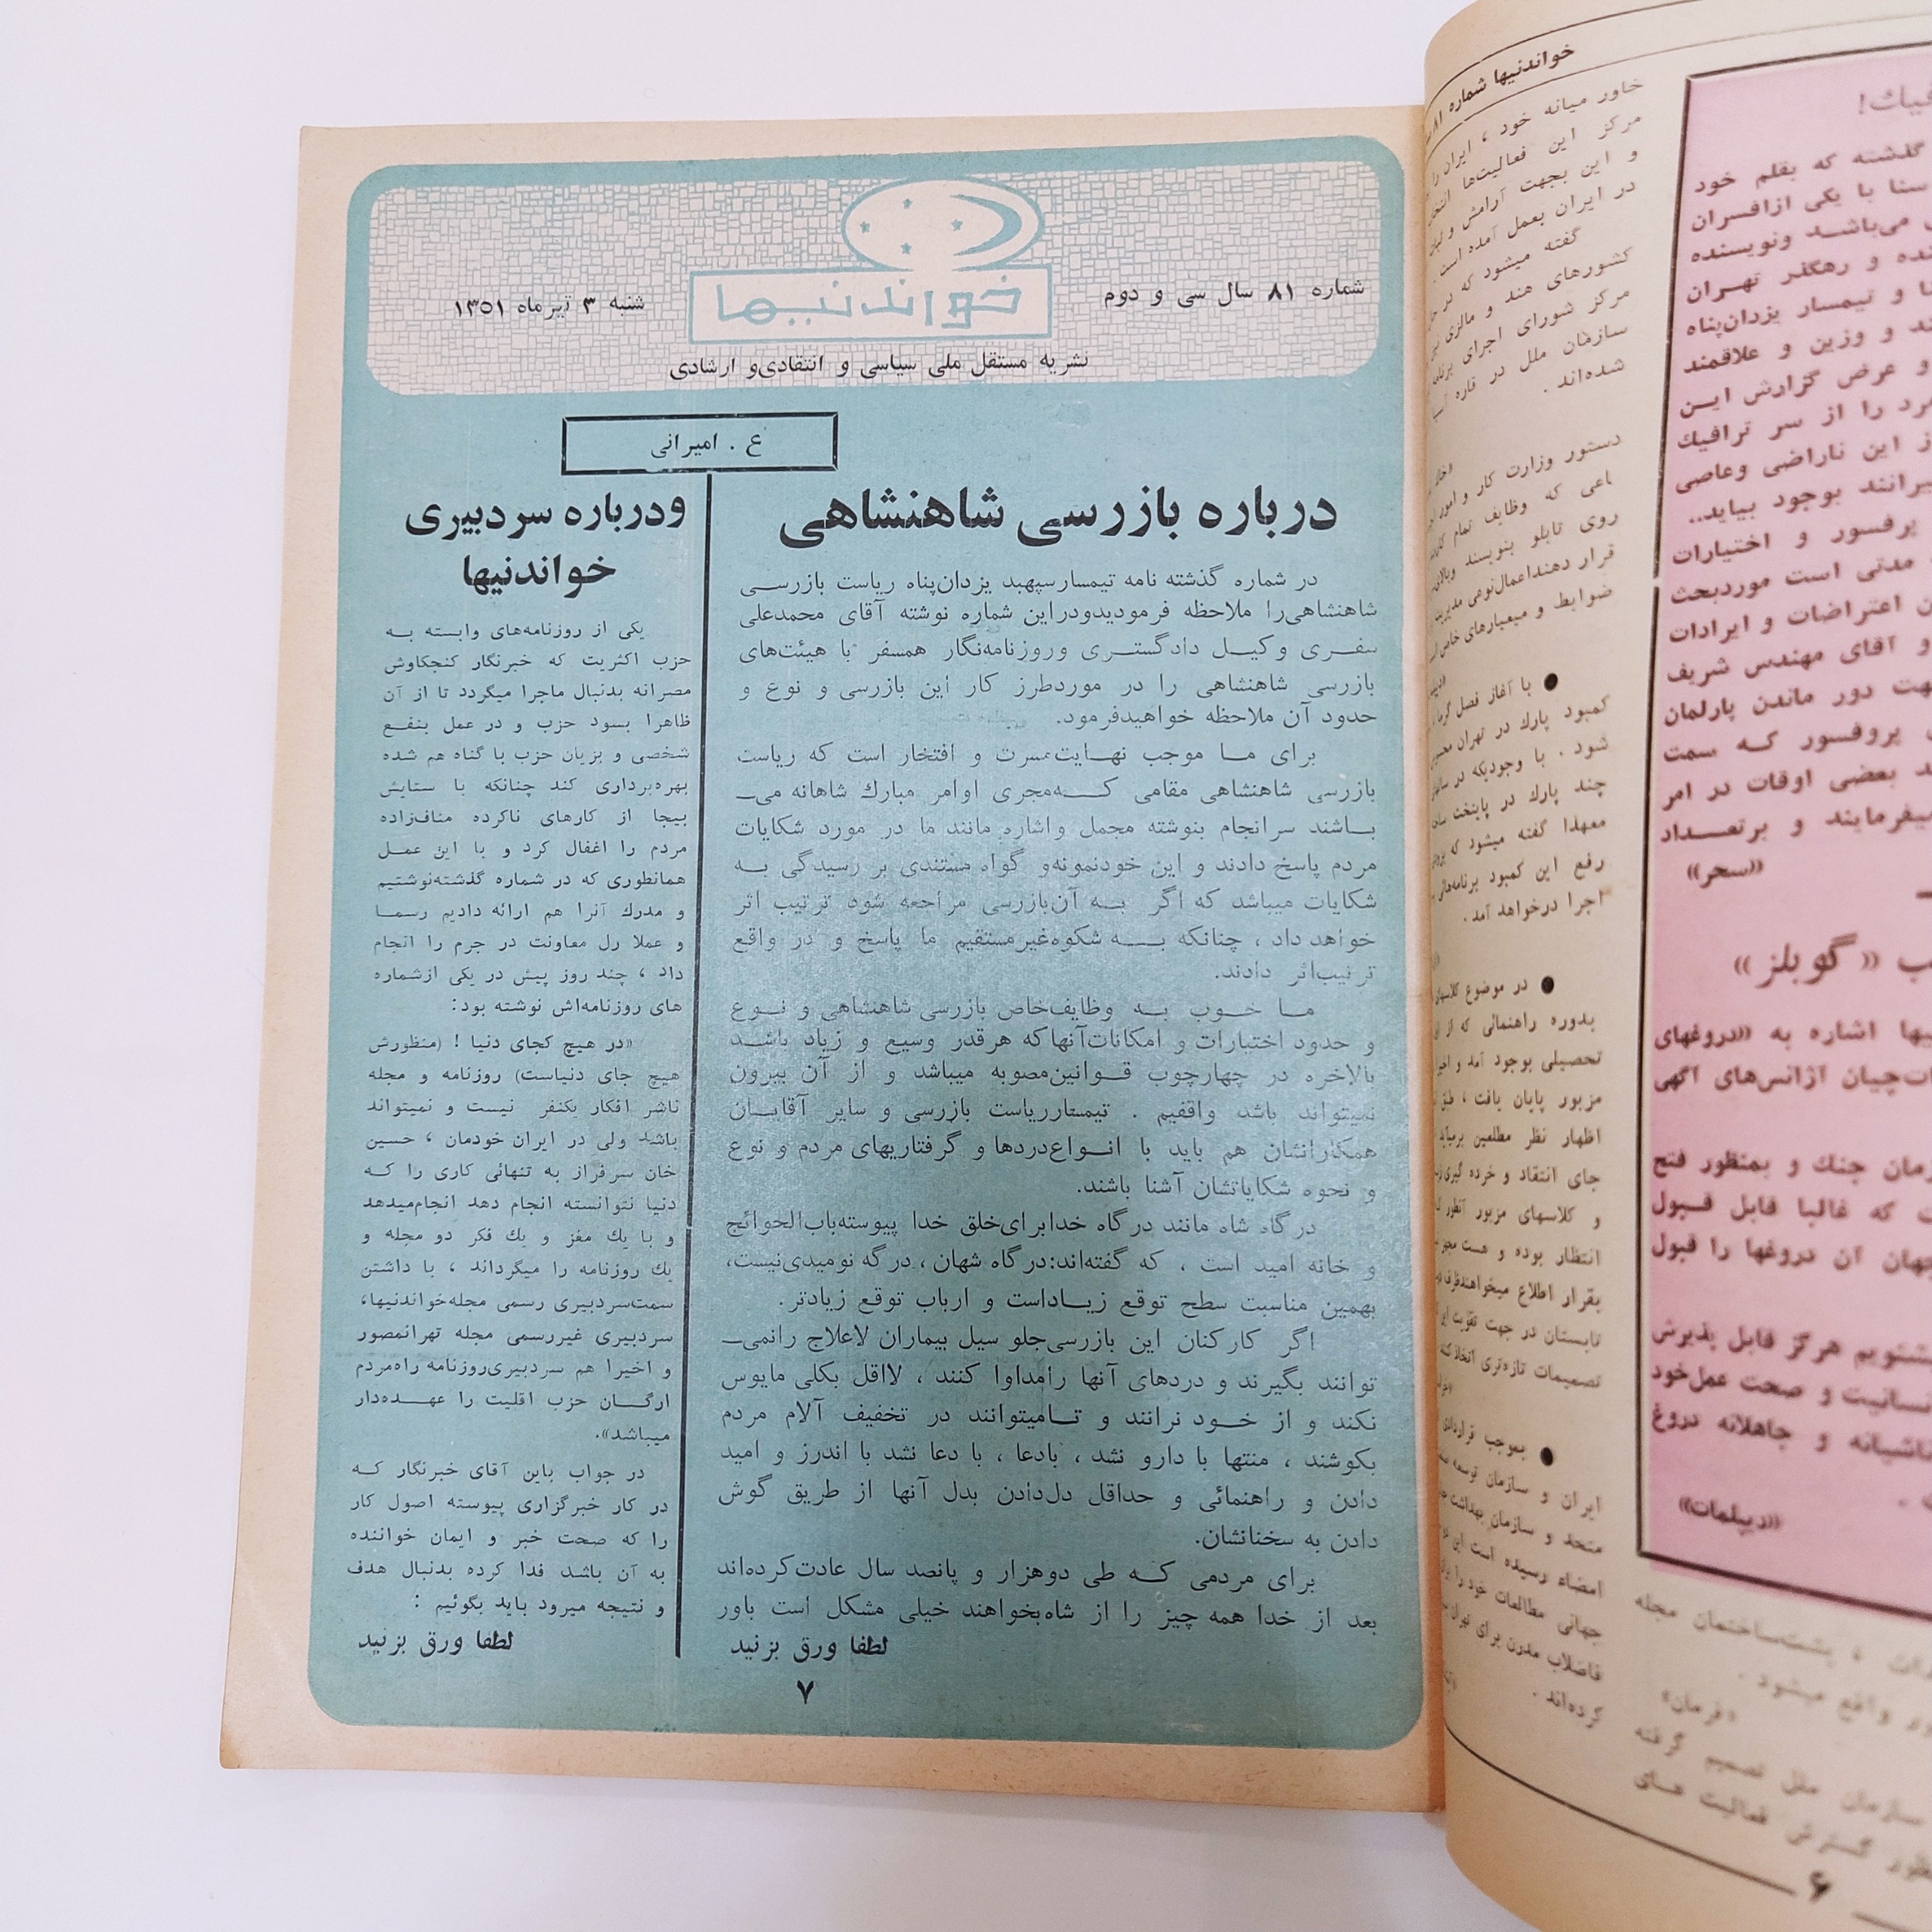 شماره ۸۱ سال سی و دوم
خواندنیها
شنبه ۳ تیرماه ۱۳۵۱
نشریه مستقل ملی سیاسی و انتقادی و ارشادی
ع . امیرانی
درباره بازرسی شاهنشاهی
در شماره گذشته نامه تیمسار سپهبد یزدان‌پناه ریاست بازرسی
شاهنشاهی‌را ملاحظه فرمودید ودراین شماره نوشته آقای محمدعلی
سفری وکیل دادگستری وروزنامه‌نگار همسفر با هیئت‌های
بازرسی شاهنشاهی را در مورد طرز کار این بازرسی و نوع و
حدود آن ملاحظه خواهید فرمود.
برای ما موجب نهایت مسرت و افتخار است که ریاست
بازرسی شاهنشاهی مقامی که مجری اوامر مبارك شاهانه می‌ـ
باشند سرانجام بنوشته مجمل واشاره مانند ما در مورد شکایات
مردم پاسخ دادند و این خود نمونه‌و گواه مستندی بر رسیدگی به
شکایات میباشد که اگر به آن بازرسی مراجعه شود ترتیب اثر
خواهد داد ، چنانکه به شکوه غیرمستقیم ما پاسخ و در واقع
ترتیب‌اثر دادند.
ما خوب به وظایف خاص بازرسی شاهنشاهی و نوع
و حدود اختیارات و امکانات آنها که هرقدر وسیع و زیاد باشد
بالاخره در چهارچوب قوانین مصوبه میباشد و از آن بیرون
نمیتواند باشد واقفیم . تیمسار ریاست بازرسی و سایر آقایان
همکارانشان هم باید با انواع دردها و گرفتاریهای مردم و نوع
و نحوه شکایاتشان آشنا باشند.
درگاه شاه مانند درگاه خدا برای خلق خدا پیوسته باب‌الحوائج
و خانه امید است ، که گفته‌اند: درگاه شهان ، درگه نومیدی نیست،
بهمین مناسبت سطح توقع زیاد است و ارباب توقع زیادتر.
اگر کارکنان این بازرسی جلو سیل بیماران لاعلاج را نمی‌ـ
توانند بگیرند و دردهای آنها را مداوا کنند ، لااقل بکلی مایوس
نکند و از خود نرانند و تا میتوانند در تخفیف آلام مردم
بکوشند ، منتها با دارو نشد ، بادعا ، با دعا نشد با اندرز و امید
دادن و راهنمائی و حداقل دل‌دادن بدل آنها از طریق گوش
دادن به سخنانشان.
برای مردمی که طی دوهزار و پانصد سال عادت کرده‌اند
بعد از خدا همه چیز را از شاه بخواهند خیلی مشکل است باور
لطفا ورق بزنید
ودرباره سردبیری
خواندنیها
یکی از روزنامه‌های وابسته به
حزب اکثریت که خبرنگار کنجکاوش
مصرانه بدنبال ماجرا میگردد تا از آن
ظاهرا بسود حزب و در عمل بنفع
شخصی و بزیان حزب با گناه هم شده
بهره‌برداری کند چنانکه با ستایش
بیجا از کارهای ناکرده مناف‌زاده
مردم را اغفال کرد و با این عمل
همانطوری که در شماره گذشته نوشتیم
و مدرك آنرا هم ارائه دادیم رسما
و عملا رل معاونت در جرم را انجام
داد ، چند روز پیش در یکی از شماره
های روزنامه‌اش نوشته بود:
«در هیچ کجای دنیا ! (منظورش
هیچ جای دنیاست) روزنامه و مجله
ناشر افکار یکنفر نیست و نمیتواند
باشد ولی در ایران خودمان ، حسین
خان سرفراز به تنهائی کاری را که
دنیا نتوانسته انجام دهد انجام میدهد
و با یك مغز و یك فکر دو مجله و
یك روزنامه را میگرداند ، با داشتن
سمت سردبیری رسمی مجله خواندنیها،
سردبیری غیررسمی مجله تهرانمصور
و اخیرا هم سردبیری روزنامه راه مردم
ارگان حزب اقلیت را عهده‌دار
میباشد».
در جواب باین آقای خبرنگار که
در کار خبرگزاری پیوسته اصول کار
را که صحت خبر و ایمان خواننده
به آن باشد فدا کرده بدنبال هدف
و نتیجه میرود باید بگوئیم :
لطفا ورق بزنید
۷
خواندنیها شماره ۸۱
خاور میانه خود ، ایران را
مرکز این فعالیت‌ها
و این بجهت آرامش و
در ایران بعمل آمده است .
گفته میشود که در
کشورهای هند و مالزی نیز
مرکز شورای اجرای
سازمان ملل در قاره آسیا
شده‌اند .
دستور وزارت کار و امور
که وظایف تمام
روی تابلو بنویسند
قرار دهند اعمال نوعی مدیریت
ضوابط و معیارهای خاص
● با آغاز فصل گرما
کمبود پارك در تهران
شود . با وجودیکه در
چند پارك در پایتخت
معهذا گفته میشود که
رفع این کمبود برنامه‌هائی
اجرا درخواهد آمد .
● در موضوع کلاسهای
بدوره راهنمائی که از
تحصیلی بوجود آمد و
مزبور پایان یافت ، طبق
اظهار نظر مطلعین
جای انتقاد و خرده گیری
و کلاسهای مزبور آنطور که
انتظار بوده و هست
بقرار اطلاع میخواهند
تابستان در جهت تقویت این
تصمیمات تازه‌تری اتخاذ کنند
● بموجب قراردادی
ایران و سازمان توسعه
متحد و سازمان بهداشت
امضاء رسیده است این
جهانی مطالعات خود را
فاضلاب مدرن برای تهران
کرده‌اند .
گذشته که بقلم خود
سنا با یکی از افسران
می‌باشد ونویسنده
و رهگذر تهران
و تیمسار یزدان‌پناه
و وزین و علاقمند
و عرض گزارش این
را از سر ترافیك
از این ناراضی وعاصی
بوجود بیاید..
پرفسور و اختیارات
مدتی است مورد بحث
اعتراضات و ایرادات
و آقای مهندس شریف
دور ماندن پارلمان
پروفسور که سمت
بعضی اوقات در امر
میفرمایند و برتعداد
«سحر»
«گوبلز»
اشاره به «دروغهای
آژانس‌های آگهی
جنك و بمنظور فتح
که غالبا قابل قبول
جهان آن دروغها را قبول
هرگز قابل پذیرش
انسانیت و صحت عمل خود
ناشیانه و جاهلانه دروغ
«دیپلمات»
، پشت ساختمان مجله
واقع میشود .
«فرمان»
سازمان ملل تصمیم گرفته
گسترش فعالیت های
۶